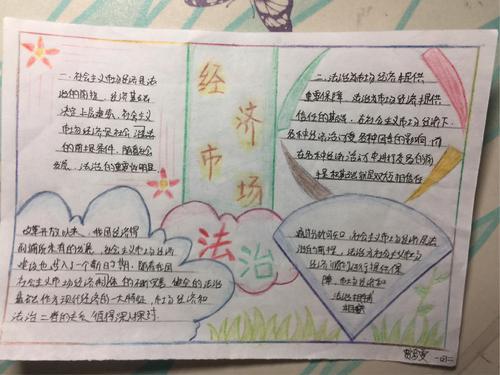 一、社会主义市场经济是法
治的前提，经济基础
决定上层建筑，社会主义
市场经济是社会
的前提条件，随着社会
发展，法治的重要性明显
经济
市场
二、法治为市场经济提供
重要保障，法治为市场经济提供
信任的基础，在社会主义市场经济下
各种经济活动受各种因素的影响，而
在各种经济活动中进行交易的
基础就是双方相互信任
法治
改革开放以来，我国经济得
到前所未有的发展，社会主义市场经济
建设也步入了一个新日期，随着我国
社会主义市场经济制度的不断完善，健全的法治
基础作为现代经济的一大特征，市场经济和
法治二者的关系值得深入探讨
社会主义市场经济是法
治的前提，法治为社会主义市场
经济顺利进行提供保
障，市场经济和
法治相辅
相